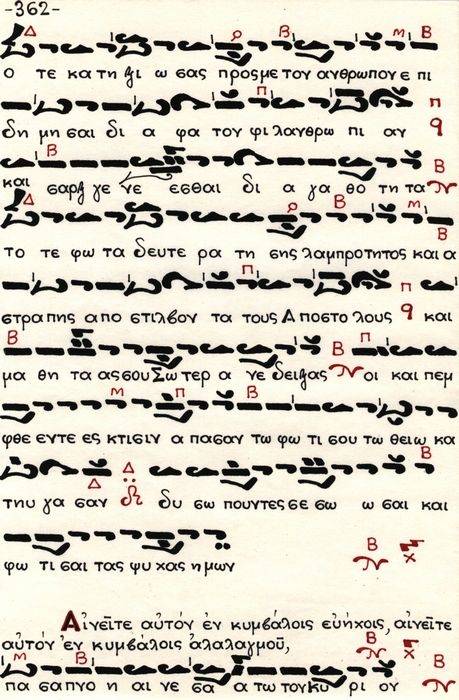 -362-
Ο τε κα τη ξι ω σας προς με τον ανθρωπον ε πι
δη μη σαι δι α φα τον φι λανθρω πι αν
και σαρξ γε νε εσθαι δι α γα θο τη τα
το τε φω τα δευτε ρα τη σης λαμπροτητος και α
στραπης απο στιλβον τα τους Αποστο λους και
μα θη τα ας σου Σωτερ α νε δειξας οι και πεμ
φθε εντε ες κτισιν α πασαν τω φω τι σου τω θειω κα
τηυ γα σαν δυ σω πουντες σε σω ω σαι και
φω τι σαι τας ψυ χας η μων
Αἰνεῖτε αὐτόν ἐν κυμβάλοις εὐήχοις, αἰνεῖτε
αὐτόν ἐν κυμβάλοις ἀλαλαγμοῦ,
πα σα πνο η αι νε σα α τω τον κυ ρι ον